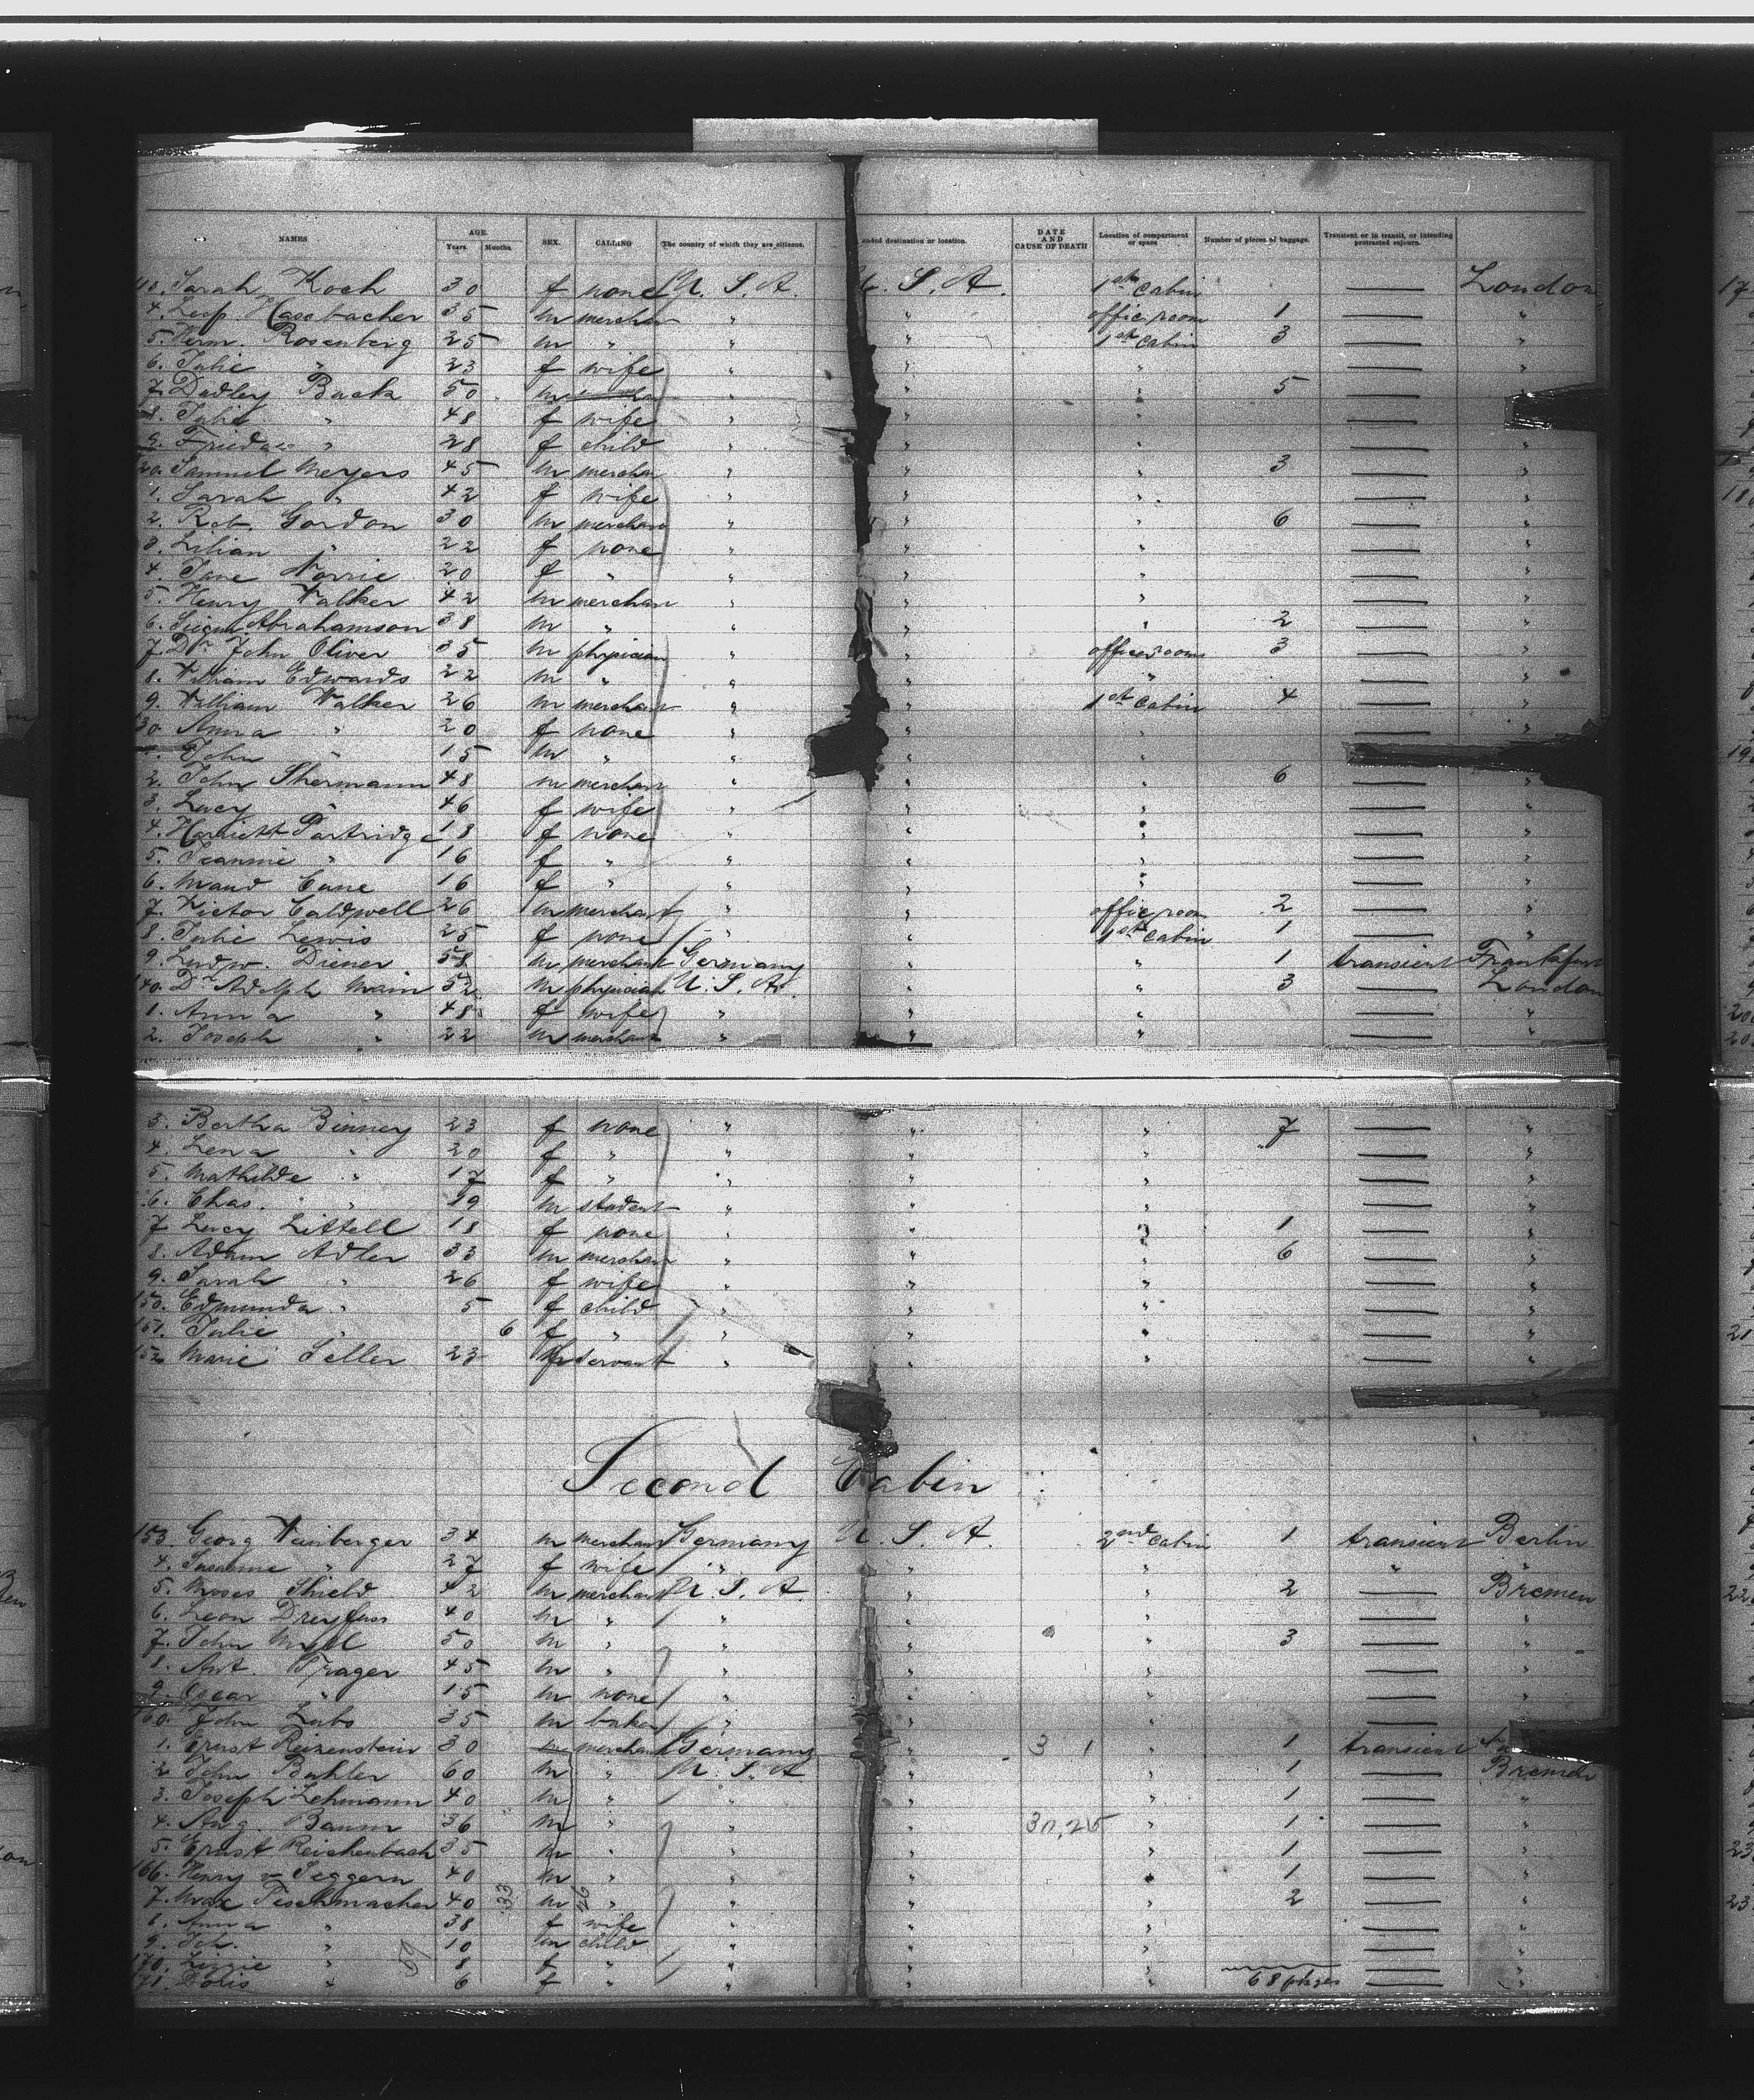 NAMES AGE. Years. Months. SEX. CALLING The country of which they are citizens. ended destination or location. DATE AND CAUSE OF DEATH Location of compartment or space Number of pieces of baggage. Transient or in transit, or intending protracted sojourn.
Sarah Koch 30 f none U. S. A. U. S. A. 1st Cabin — London
4. Leop. Hasebacher 35 m merchan " " office room 1 — "
5. Herm. Rosenberg 25 m " " " 1st Cabin 3 — "
6. Julie " 23 f wife " " " — "
7. Dudley Back 50 m " " " 5 — "
8. Julie " 48 f wife " " " — "
9. Frieda " 28 f child " " " — "
120. Samuel Meyers 45 m merchan " " " 3 — "
1. Sarah " 42 f wife " " " — "
2. Rob. Gordon 30 m merchan " " " 6 — "
3. Lilian " 22 f none " " " — "
4. Jane Norrie 20 f " " " " — "
5. Henry Walker 42 m merchan " " " — "
6. Abrahamson 38 m " " " " 2 — "
7. Dr. John Oliver 35 m physician " " officer room 3 — "
8. William Edwards 22 m " " " " — "
9. William Walker 26 m merchan " " 1st Cabin 4 — "
130. Anna " 20 f none " " " — "
1. John " 15 m " " " "
2. John Shermann 48 m merchan " " " 6 — "
3. Lucy " 46 f wife " " " — "
4. Harriett Partridge 18 f none " " " — "
5. Jeannie " 16 f " " " " — "
6. Maud Cane 16 f " " " " — "
7. Victor Caldwell 26 m merchant " " office room 2 — "
8. Julie Lewis 25 f none " " 1st Cabin 1 — "
9. Ludw. Diener 58 m merchant Germany " " 1 transient Frankfurt
140. Dr. Adolph Main 52 m physician U. S. A. " " 3 — London
1. Anna " 48 f wife " " " — "
2. Joseph " 22 m merchant " " " — "
3. Bertha Binney 23 f none " " " 7 — "
4. Lena " 20 f " " " " — "
5. Mathilde " 17 f " " " " — "
6. Chas. " 19 m student " " " — "
7. Lucy Littell 18 f none " " " 1 — "
8. Adam Adler 33 m merchan " " " 6 — "
9. Sarah " 26 f wife " " " — "
150. Edmunda " 5 f child " " " — "
151. Julie " 6 f " " " " — "
152. Marie Seller 23 f servant " " " — "
Second Cabin
153. Georg Weinberger 34 m merchant Germany U. S. A. 2nd Cabin 1 transient Berlin
4. " 27 f wife " " " " "
5. Moses Shield 42 m merchant U. S. A. " " 2 — Bremen
6. Leon Dreyfuss 40 m " " " " — "
7. John 50 m " " " " 3 — "
8. Ant. Trager 45 m " " " " — "
9. Oscar " 15 m none " " " — "
160. John Lubs 35 m baker " " " —
1. Ernst Reizenstein 30 m merchant Germany " 3 1 " 1 transient
2. John Buhler 60 m " U. S. A. " " 1 — Bremen
3. Joseph Lehmann 40 m " " " " 1 — "
4. Aug. Baum 36 m " " " " 1 — "
5. Ernst Reichenbach 35 m " " " " 1 — "
166. Henry v. Seggern 40 m " " " " 1 — "
7. Max Teschmacher 40 m " " " " 2 — "
8. Anna " 38 f wife " " " — "
9. Joh. " 10 m child " " " — "
170. Lizzie " 8 f " " " " — "
171. Doris " 6 f " " " " 68 pkges — "